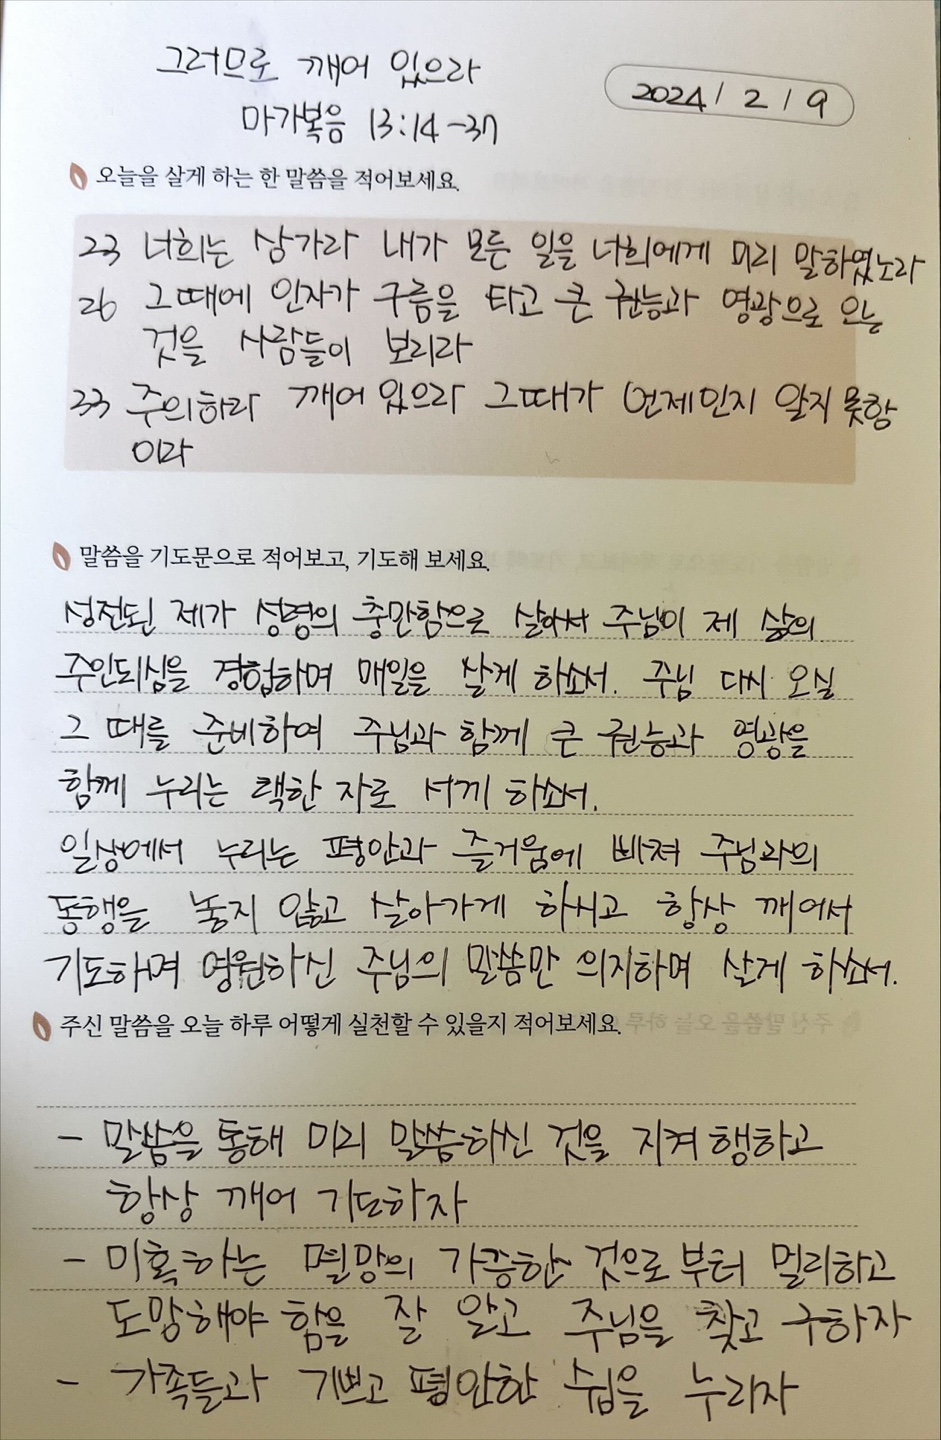 그러므로 깨어 있으라
마가복음 13:14-37
2024 / 2 / 9
오늘을 살게 하는 한 말씀을 적어보세요.
23 너희는 삼가라 내가 모든 일을 너희에게 미리 말하였노라
26 그때에 인자가 구름을 타고 큰 권능과 영광으로 오는
것을 사람들이 보리라
33 주의하라 깨어 있으라 그때가 언제인지 알지 못함
이라
말씀을 기도문으로 적어보고, 기도해 보세요.
성전된 제가 성령의 충만함으로 살아서 주님이 제 삶의
주인되심을 경험하며 매일을 살게 하소서. 주님 다시 오실
그 때를 준비하여 주님과 함께 큰 권능과 영광을
함께 누리는 택한 자로 서게 하소서.
일상에서 누리는 평안과 즐거움에 빠져 주님과의
동행을 놓지 않고 살아가게 하시고 항상 깨어서
기도하며 영원하신 주님의 말씀만 의지하며 살게 하소서.
주신 말씀을 오늘 하루 어떻게 실천할 수 있을지 적어보세요.
- 말씀을 통해 미리 말씀하신 것을 지켜 행하고
항상 깨어 기도하자
- 미혹하는 멸망의 가증한 것으로부터 멀리하고
도망해야 함을 잘 알고 주님을 찾고 구하자
- 가족들과 기쁘고 평안한 쉼을 누리자